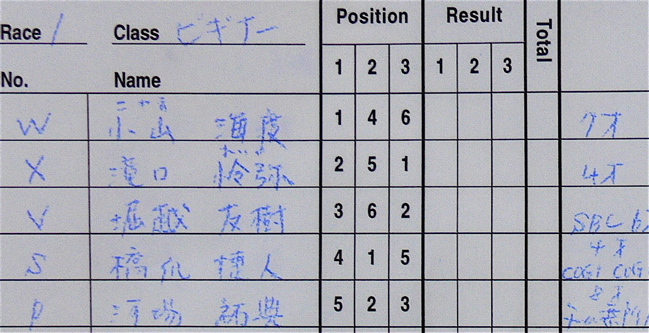 Race 1 Class ビギナー Position Result Total
No. Name 1 2 3 1 2 3
W 小山 海度 1 4 6 7才
X 滝口 怜弥 2 5 1 4才
V 堀越 友樹 3 6 2 SBC
S 橋爪 健人 4 1 5 4才
COGI COG
P 河場 5 2 3 8才